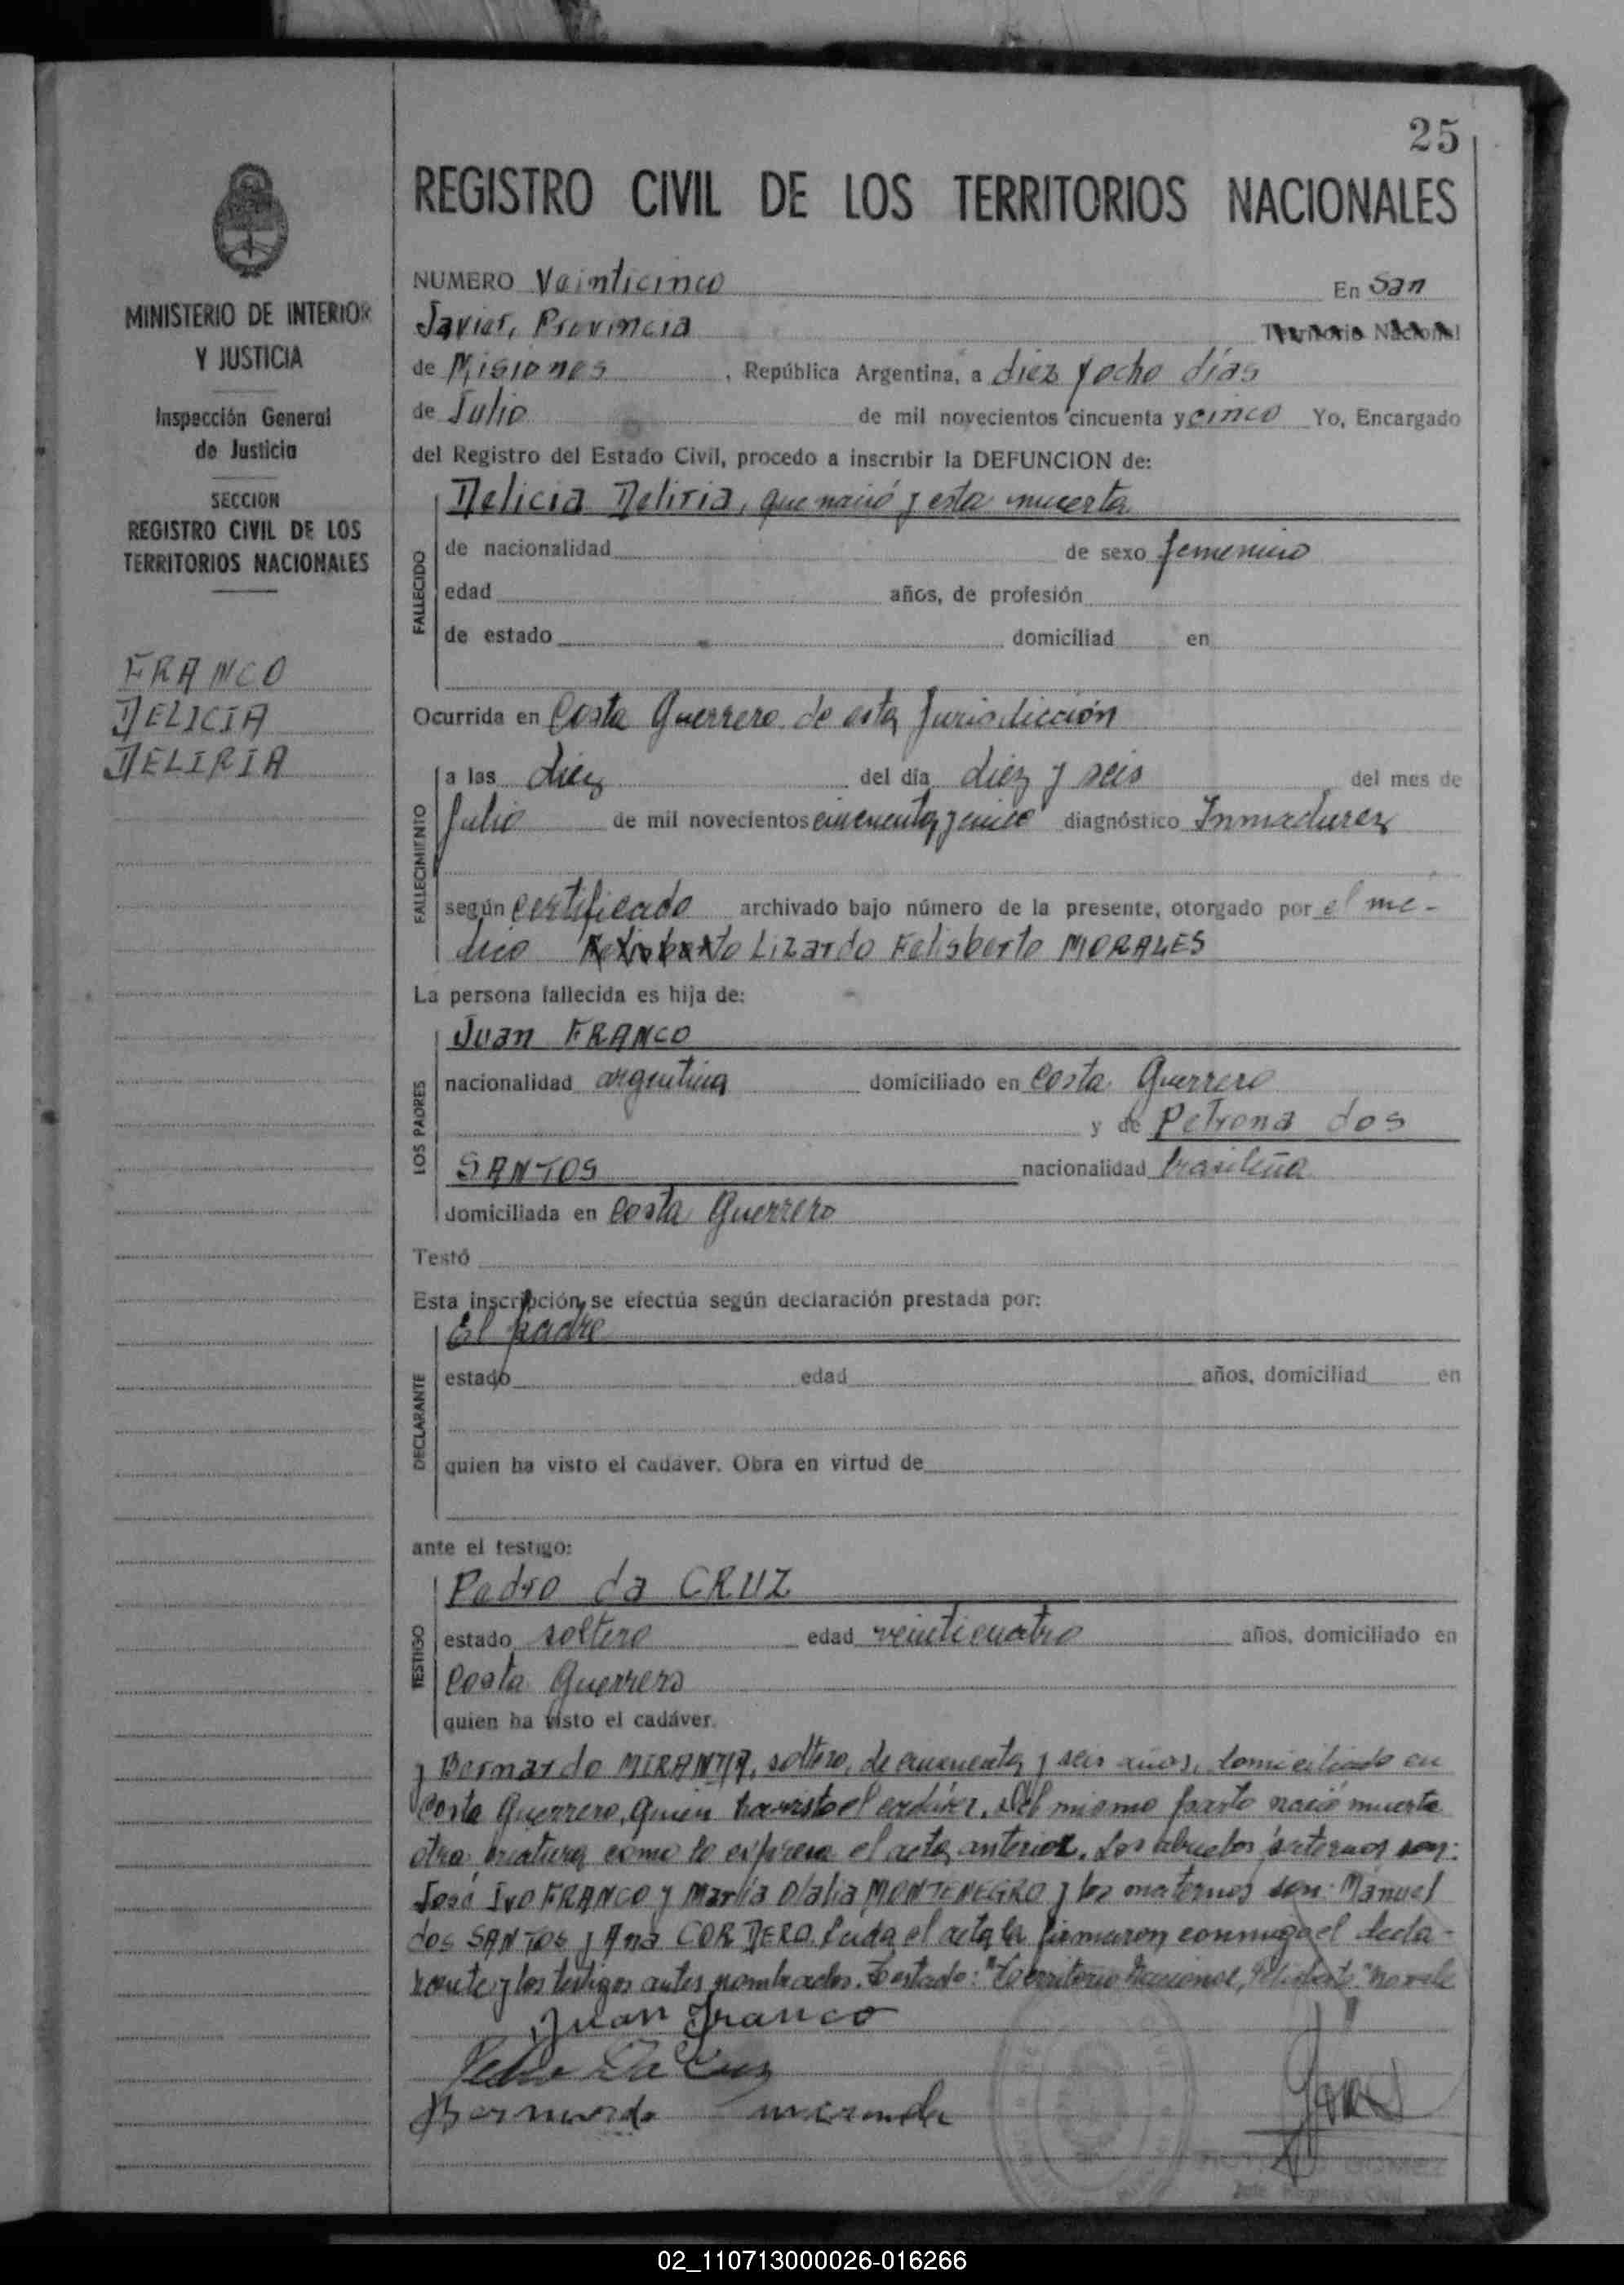 25
REGISTRO CIVIL DE LOS TERRITORIOS NACIONALES
MINISTERIO DE INTERIOR
Y JUSTICIA
Inspección General
de Justicia
SECCION
REGISTRO CIVIL DE LOS
TERRITORIOS NACIONALES
FRANCO
DELICIA
DELIRIA
NUMERO Veinticinco En San
Javier, Provincia Territorio Nacional
de Misiones, República Argentina, a diez y ocho días
de Julio de mil novecientos cincuenta y cinco Yo, Encargado
del Registro del Estado Civil, procedo a inscribir la DEFUNCION de:
FALLECIDO
Delicia Deliria, que nació y esta muerta
de nacionalidad de sexo femenino
edad años, de profesión
de estado domiciliad en
Ocurrida en Costa Guerrero de esta Jurisdicción
FALLECIMIENTO
a las diez del día diez y seis del mes de
Julio de mil novecientos cincuenta y cinco diagnóstico Inmadurez
según certificado archivado bajo número de la presente, otorgado por el mé-
dico Felisberto Lizardo Felisberto MORALES
La persona fallecida es hija de:
LOS PADRES
Juan FRANCO
nacionalidad argentina domiciliado en Costa Guerrero
y de Petrona dos
SANTOS nacionalidad brasileña
domiciliada en Costa Guerrero
Testó
Esta inscripción se efectúa según declaración prestada por:
DECLARANTE
El padre
estado edad años, domiciliad en
quien ha visto el cadáver. Obra en virtud de
ante el testigo:
TESTIGO
Pedro da CRUZ
estado soltero edad veinticuatro años, domiciliado en
Costa Guerrero
quien ha visto el cadáver.
y Bernardo MIRANDA, soltero, de cincuenta y seis años, domiciliado en
Costa Guerrero, quien ha visto el cadáver. Del mismo parto nació muerta
otra criatura como lo expresa el acta anterior. Los abuelos paternos son:
José Ivo FRANCO y María Olalia MONTENEGRO y los maternos son: Manuel
dos SANTOS y Ana CORDERO. Leída el acta la firmaron conmigo el decla-
rante y los testigos antes nombrados. Testado: "Territorio Nacional, Felisberto" no vale
Juan Franco
Pedro Da Cruz
Bernardo miranda
Jefe Registro Civil
02_110713000026-016266